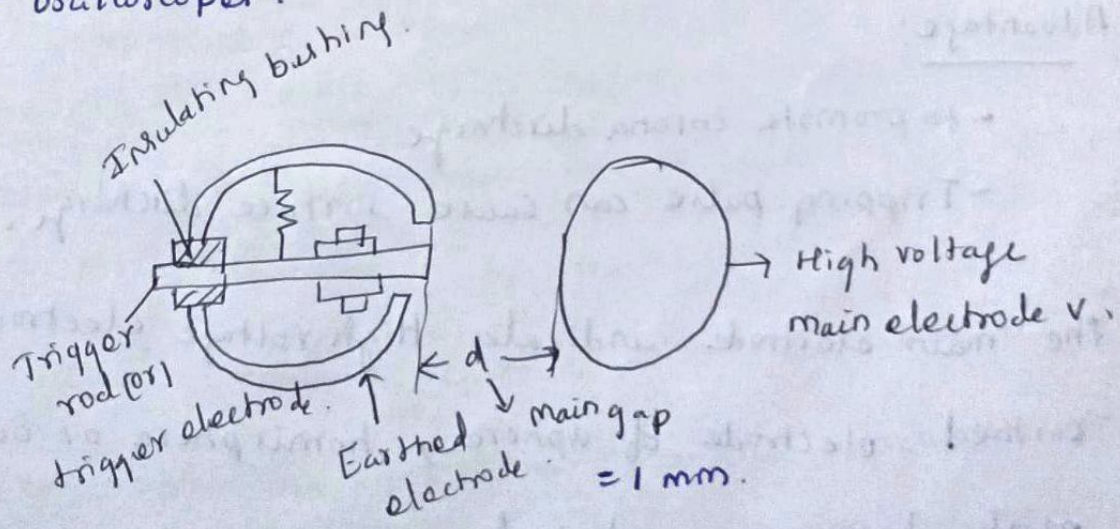 oscilloscope.
Insulating bushing.
Trigger
rod (or)
trigger electrode.
Earthed
electrode.
d
main gap
= 1 mm.
High voltage
main electrode V.